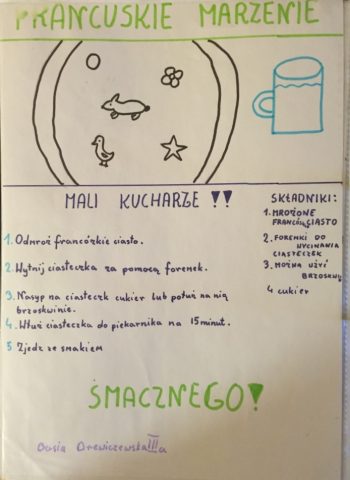 FRANCUSKIE MARZENIE
MALI KUCHARZE !!
1. Odmroź francózkie ciasto.
2. Wytnij ciasteczka za pomocą foremek.
3. Nasyp na ciasteczk cukier lub połuż na nią
brzoskwinie.
4. Włuż ciasteczka do piekarnika na 15 minut.
5 Zjedz ze smakiem
SKŁADNIKI:
1. MROŻONE
FRANCUSKIE CIASTO
2. FOREMKI DO
WYCINANIA
CIASTECZEK
3. MOŻNA UŻYĆ
BRZOSKWIŃ
4 cukier
SMACZNEGO!
Basia Drewiczewska III a